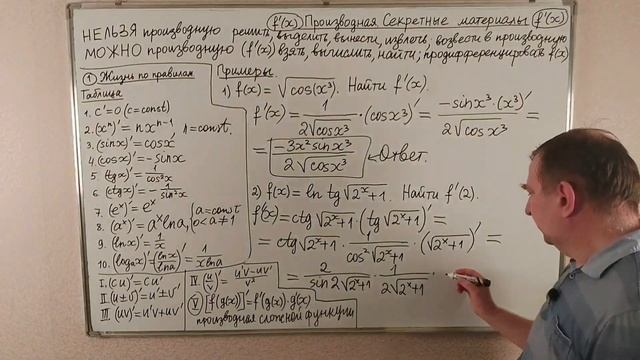 f'(x) Производная Секретные материалы f'(x)
НЕЛЬЗЯ производную решить, выделить, вынести, извлечь, возвести в производную
МОЖНО производную (f'(x)) взять, вычислить, найти; продифференцировать f(x)
① Жизнь по правилам
Таблица
1. c' = 0 (c = const)
2. (xⁿ)' = nxⁿ⁻¹, n = const.
3. (sinx)' = cosx
4. (cosx)' = -sinx
5. (tgx)' = 1/cos²x
6. (ctgx)' = -1/sin²x
7. (eˣ)' = eˣ
8. (aˣ)' = aˣ lna, {a = const 0 < a ≠ 1
9. (lnx)' = 1/x
10. (logₐx)' = (lnx/lna)' = 1/(x lna)
I. (cu)' = cu'
II. (u±v)' = u' ± v'
III. (uv)' = u'v + uv'
IV. (u/v)' = (u'v - uv')/v²
V [f(g(x))]' = f'(g)·g'(x)
производная сложной функции
Примеры.
1) f(x) = √cos(x³). Найти f'(x).
f'(x) = 1/(2√cosx³) · (cosx³)' = (-sinx³·(x³)')/(2√cosx³) =
= (-3x² sinx³)/(2√cosx³) Ответ.
2) f(x) = ln tg√(2ˣ+1). Найти f'(2).
f'(x) = ctg√(2ˣ+1) · (tg√(2ˣ+1))' =
= ctg√(2ˣ+1) · 1/cos²√(2ˣ+1) · (√(2ˣ+1))' =
= 2/sin2√(2ˣ+1) · 1/(2√(2ˣ+1)) ·